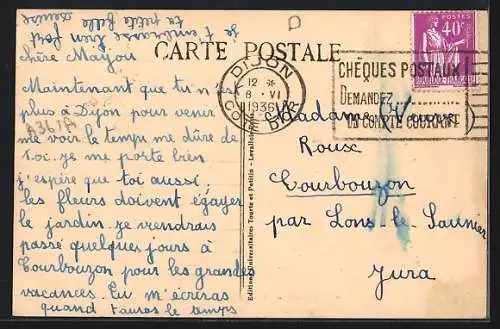 je t'embrasse bien fort
ta petite fille
Denise
D
CARTE POSTALE
Chère Maijou
Maintenant que tu n'est
plus à Dijon pour venir
me voir le temps me dure de
toi. je me porte bien
j'espère que toi aussi,
les fleurs doivent égayer
le jardin. je viendrais
passé quelques jours à
Courbouzon pour les grandes
vacances. Tu m'écriras
quand t'auras le temps
A3617
DIJON
12 *
8 · VI
1936
COTE D'OR
POSTES
40c
CHÈQUES POSTAUX
DEMANDEZ
UN COMPTE COURANT
Madame (Veuve)
Roux
Courbouzon
par Lons-le-Saunier
Jura
Editions Universitaires Tourte et Petitin - Levallois